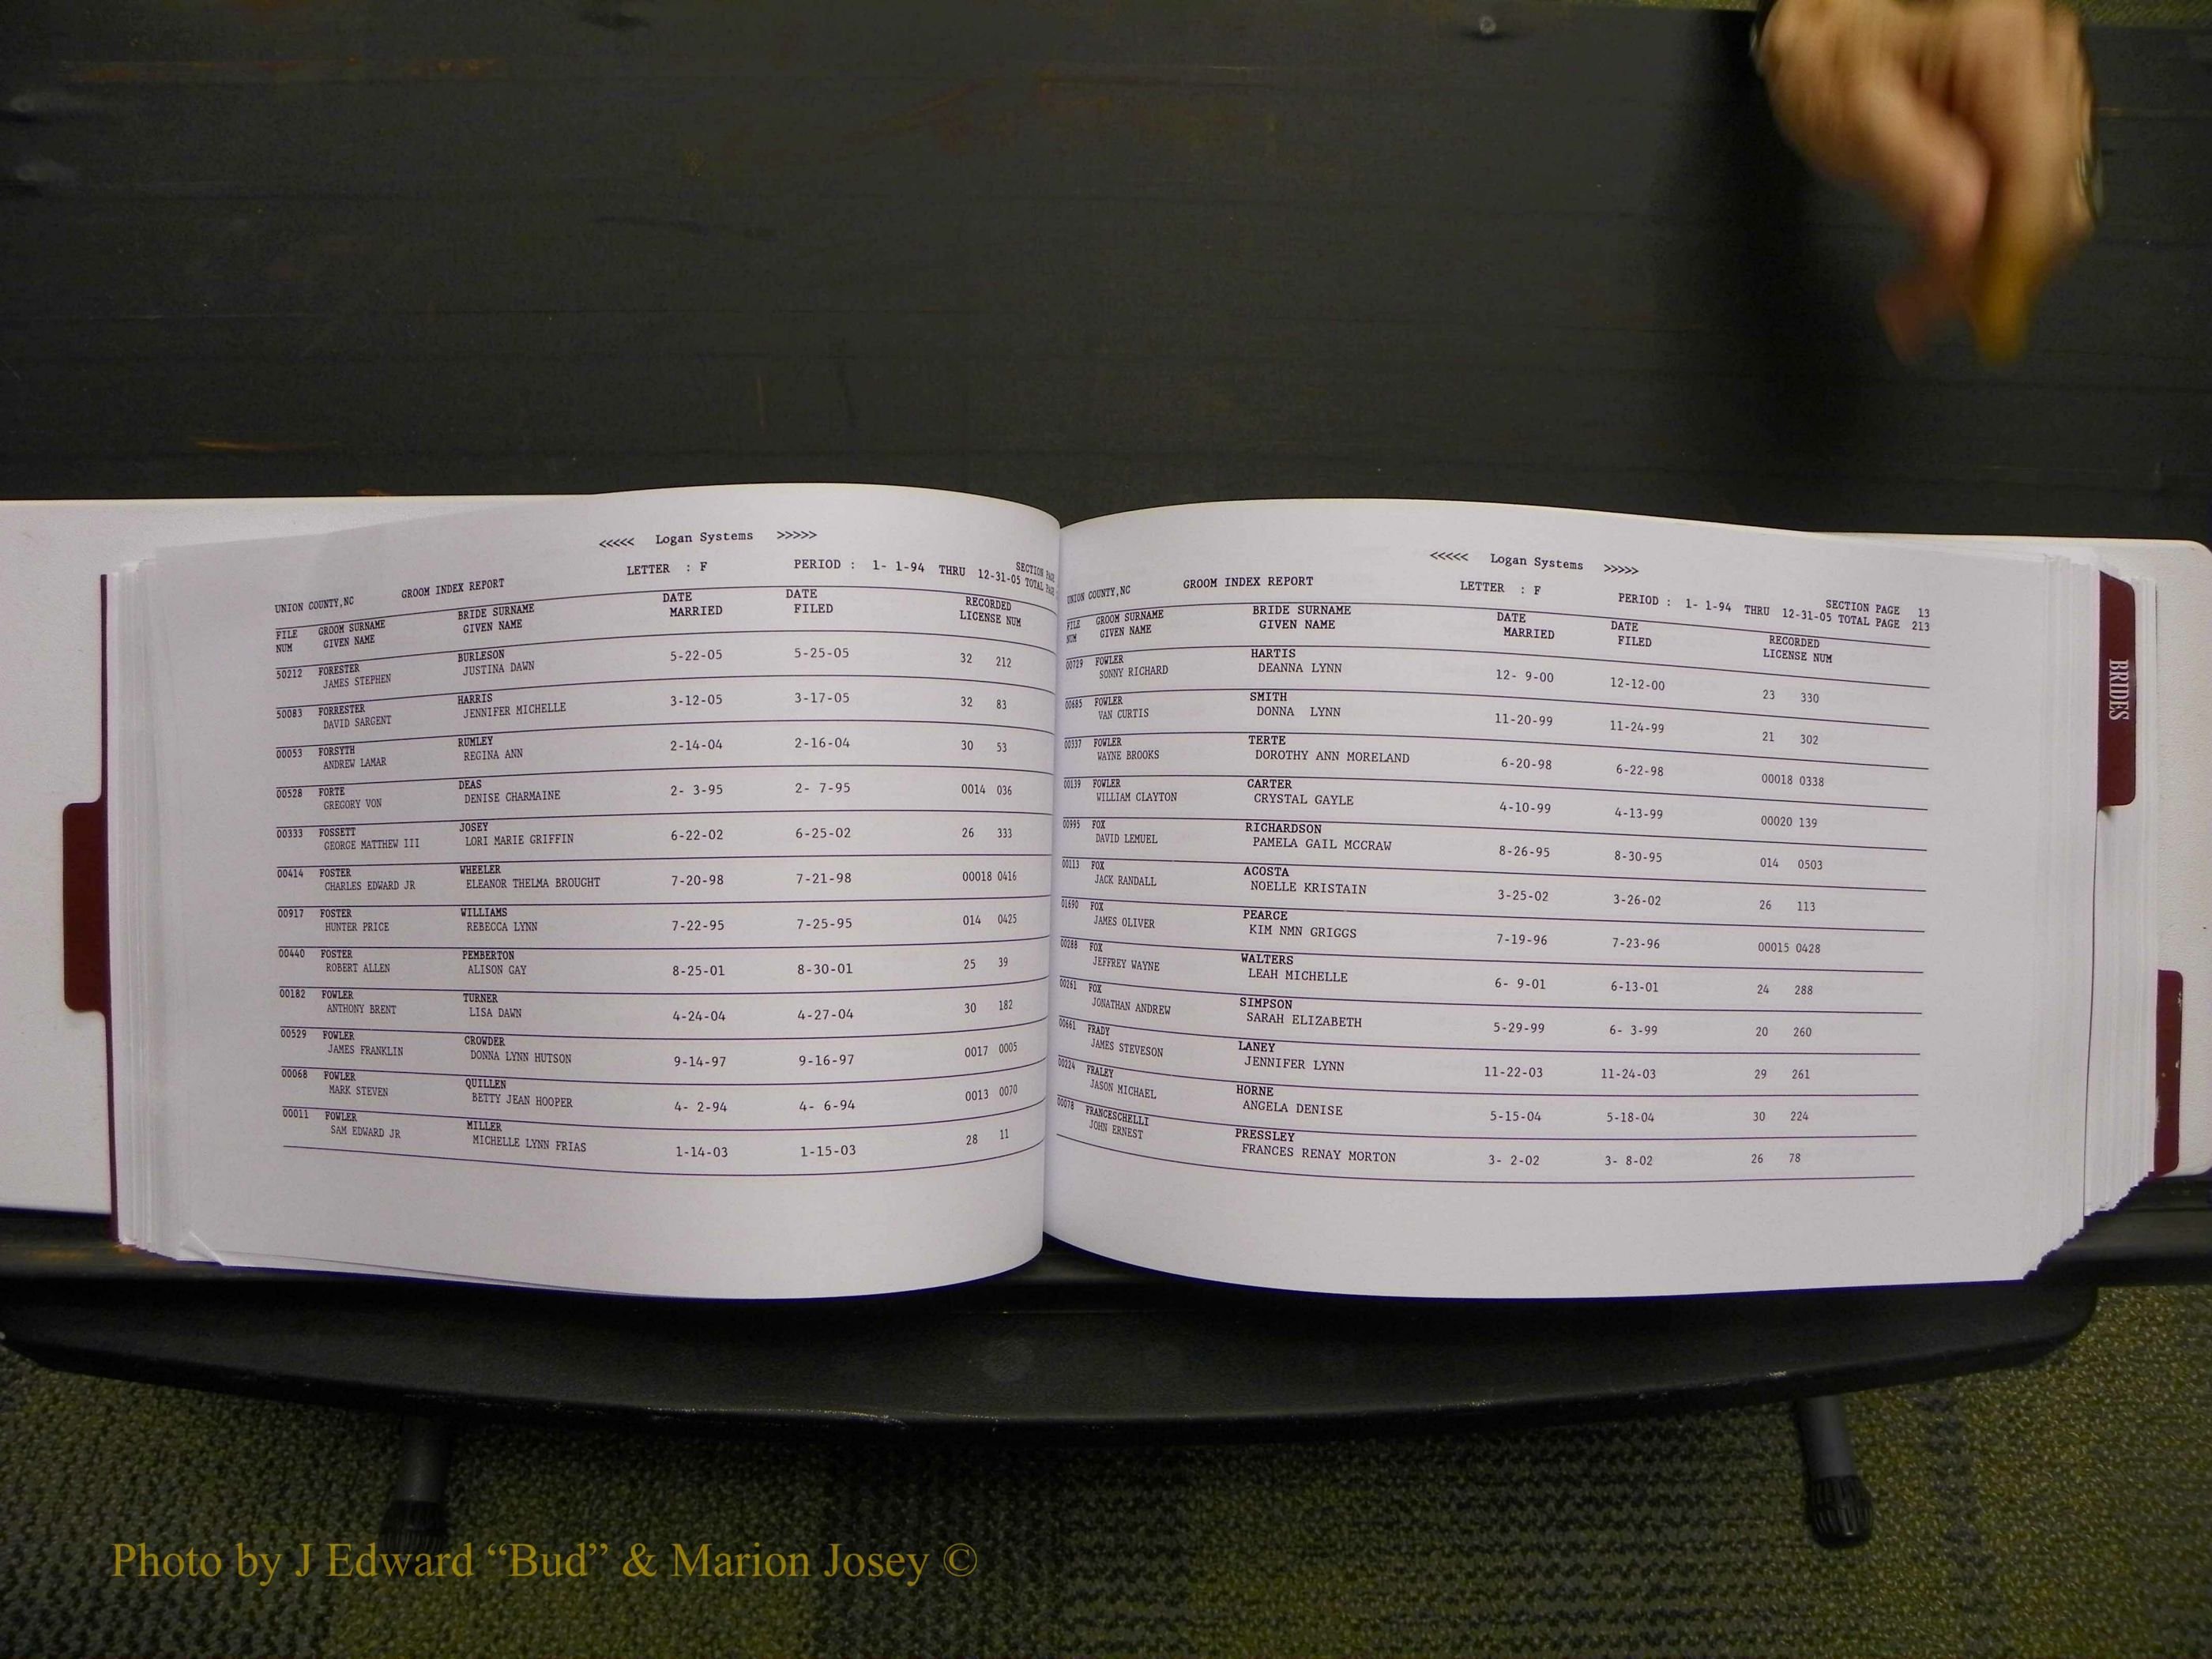 <<<<< Logan Systems >>>>>
UNION COUNTY,NC GROOM INDEX REPORT LETTER : F PERIOD : 1- 1-94 THRU 12-31-05 SECTION
TOTAL
FILE GROOM SURNAME BRIDE SURNAME DATE DATE RECORDED
NUM GIVEN NAME GIVEN NAME MARRIED FILED LICENSE NUM
50212 FORESTER BURLESON 5-22-05 5-25-05 32 212
JAMES STEPHEN JUSTINA DAWN
50083 FORRESTER HARRIS 3-12-05 3-17-05 32 83
DAVID SARGENT JENNIFER MICHELLE
00053 FORSYTH RUMLEY 2-14-04 2-16-04 30 53
ANDREW LAMAR REGINA ANN
00528 FORTE DEAS 2- 3-95 2- 7-95 0014 036
GREGORY VON DENISE CHARMAINE
00333 FOSSETT JOSEY 6-22-02 6-25-02 26 333
GEORGE MATTHEW III LORI MARIE GRIFFIN
00414 FOSTER WHEELER 7-20-98 7-21-98 00018 0416
CHARLES EDWARD JR ELEANOR THELMA BROUGHT
00917 FOSTER WILLIAMS 7-22-95 7-25-95 014 0425
HUNTER PRICE REBECCA LYNN
00440 FOSTER PEMBERTON 8-25-01 8-30-01 25 39
ROBERT ALLEN ALISON GAY
00182 FOWLER TURNER 4-24-04 4-27-04 30 182
ANTHONY BRENT LISA DAWN
00529 FOWLER CROWDER 9-14-97 9-16-97 0017 0005
JAMES FRANKLIN DONNA LYNN HUTSON
00068 FOWLER QUILLEN 4- 2-94 4- 6-94 0013 0070
MARK STEVEN BETTY JEAN HOOPER
00011 FOWLER MILLER 1-14-03 1-15-03 28 11
SAM EDWARD JR MICHELLE LYNN FRIAS
<<<<< Logan Systems >>>>>
UNION COUNTY,NC GROOM INDEX REPORT LETTER : F PERIOD : 1- 1-94 THRU 12-31-05 SECTION PAGE 13
TOTAL PAGE 213
FILE GROOM SURNAME BRIDE SURNAME DATE DATE RECORDED
NUM GIVEN NAME GIVEN NAME MARRIED FILED LICENSE NUM
00729 FOWLER HARTIS 12- 9-00 12-12-00 23 330
SONNY RICHARD DEANNA LYNN
00685 FOWLER SMITH 11-20-99 11-24-99 21 302
VAN CURTIS DONNA LYNN
00337 FOWLER TERTE 6-20-98 6-22-98 00018 0338
WAYNE BROOKS DOROTHY ANN MORELAND
00139 FOWLER CARTER 4-10-99 4-13-99 00020 139
WILLIAM CLAYTON CRYSTAL GAYLE
00995 FOX RICHARDSON 8-26-95 8-30-95 014 0503
DAVID LEMUEL PAMELA GAIL MCCRAW
00113 FOX ACOSTA 3-25-02 3-26-02 26 113
JACK RANDALL NOELLE KRISTAIN
01690 FOX PEARCE 7-19-96 7-23-96 00015 0428
JAMES OLIVER KIM NMN GRIGGS
00288 FOX WALTERS 6- 9-01 6-13-01 24 288
JEFFREY WAYNE LEAH MICHELLE
00261 FOX SIMPSON 5-29-99 6- 3-99 20 260
JONATHAN ANDREW SARAH ELIZABETH
00661 FRADY LANEY 11-22-03 11-24-03 29 261
JAMES STEVESON JENNIFER LYNN
00224 FRALEY HORNE 5-15-04 5-18-04 30 224
JASON MICHAEL ANGELA DENISE
00078 FRANCESCHELLI PRESSLEY 3- 2-02 3- 8-02 26 78
JOHN ERNEST FRANCES RENAY MORTON
BRIDES
Photo by J Edward “Bud” & Marion Josey ©